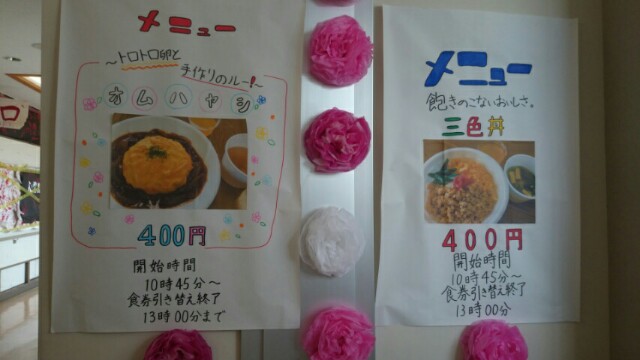 メニュー
〜トロトロ卵と
手作りのルー!〜
オムハヤシ
400円
開始時間
10時45分〜
食券引き替え終了
13時00分まで
メニュー
飽きのこないおいしさ。
三色丼
400円
開始時間
10時45分〜
食券引き替え終了
13時00分
ロ